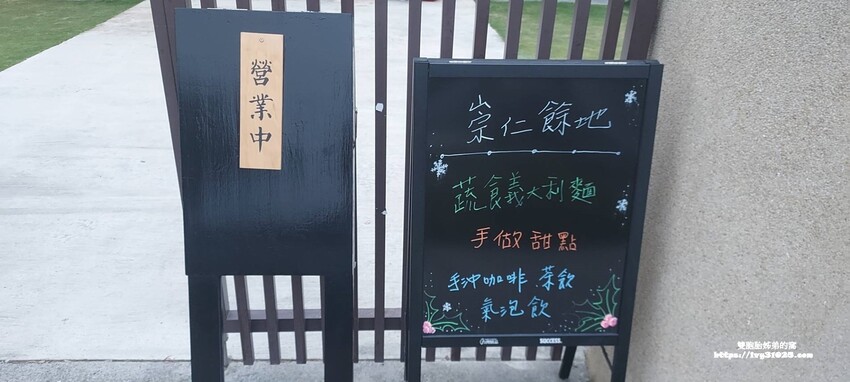 營業中
崇仁餘地
蔬食義大利麵
手做甜點
手沖咖啡 茶飲
氣泡飲
SUCCESS
雙胞胎姊弟的窩
https://lvg31025.com